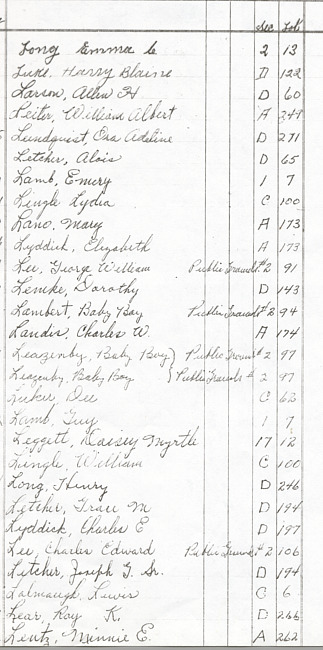 Sec Lot
Long Emma C 2 13
Luke, Harry Blaine D 122
Larson, Allen H D 60
Leiter, William Albert A 247
Lundquist, Ora Adeline D 271
Letcher, Alois D 65
Lamb, Emery 1 7
Lingle Lydia C 100
Lano, Mary A 173
Lyddick, Elizabeth A 173
Lee, George William Public Ground #2 91
Lemke, Dorothy D 143
Lambert, Baby Boy Public Ground #2 94
Landis, Charles W. A 174
Leazenby, Baby Boy } Public Ground #2 97
Leazenby, Baby Boy } Public Ground #2 97
Dee C 62
Lamb, Guy 1 7
Leggett, Daisey Myrtle 17 12
Lingle, William C 100
Long, Henry D 246
Letcher, Grace M D 194
Lyddick, Charles E D 197
Lee, Charles Edward Public Ground #2 106
Letcher, Joseph G. Sr. D 194
Lalmaugh, Lewis C 6
Lear, Roy K. D 266
Lentz, Minnie E. A 262